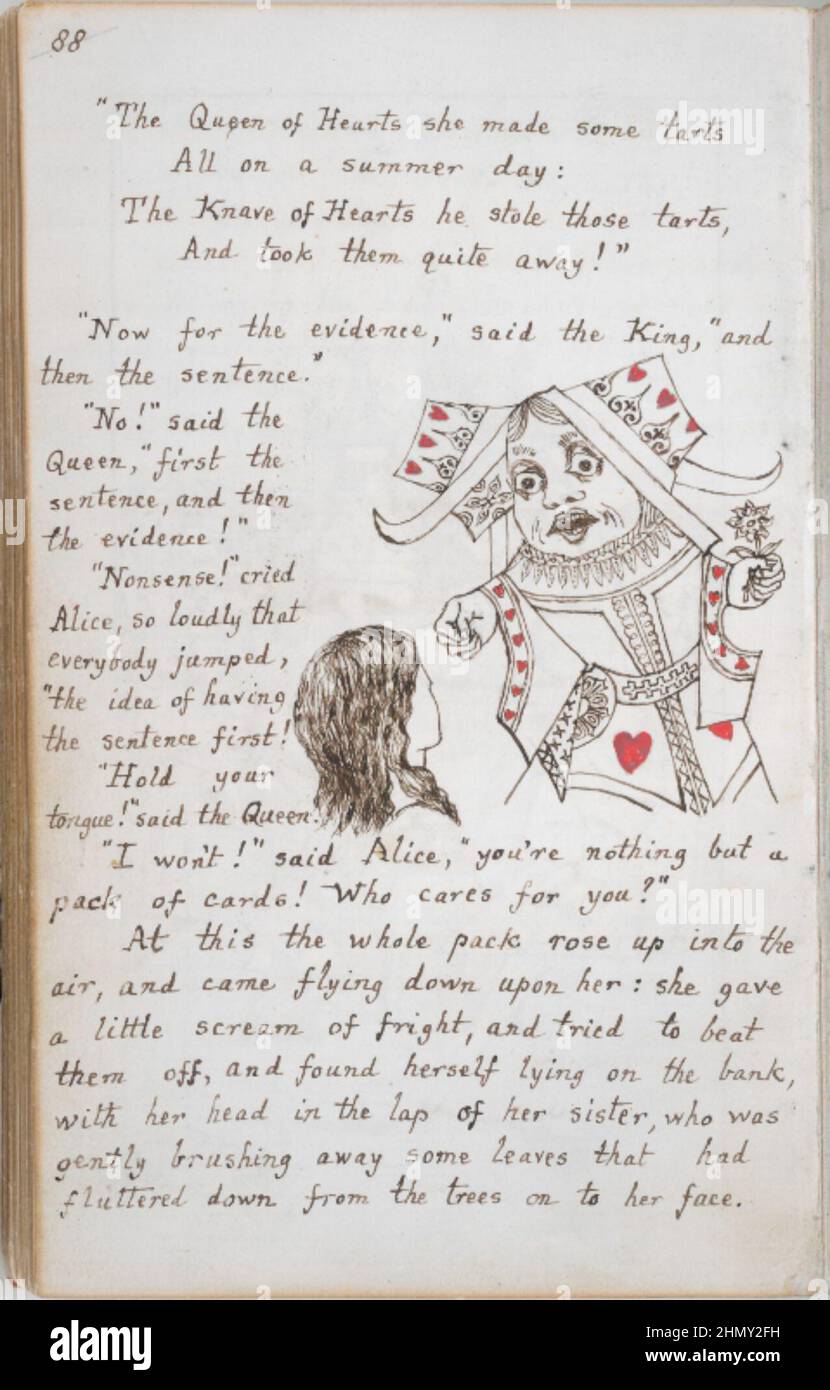 88
"The Queen of Hearts she made some tarts
All on a summer day:
The Knave of Hearts he stole those tarts,
And took them quite away!"
"Now for the evidence," said the King, "and
then the sentence."
"No!" said the
Queen, "first the
sentence, and then
the evidence!"
"Nonsense!" cried
Alice, so loudly that
everybody jumped,
"the idea of having
the sentence first!
"Hold your
tongue!" said the Queen.
"I won't!" said Alice, "you're nothing but a
pack of cards! Who cares for you?"
At this the whole pack rose up into the
air, and came flying down upon her: she gave
a little scream of fright, and tried to beat
them off, and found herself lying on the bank,
with her head in the lap of her sister, who was
gently brushing away some leaves that had
fluttered down from the trees on to her face.
alamy
alamy
alamy
alamy
Image ID: 2HMY2FH
www.alamy.com